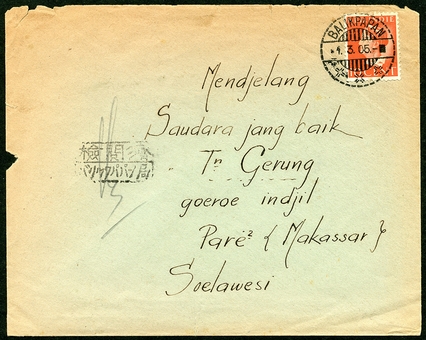 BALIKPAPAN
3. 05.-
Mendjelang
Saudara jang baik
Tⁿ Gerung
goeroe indjil
Pare² { Makassar }
Soelawesi
檢閲済
バリックパパン局